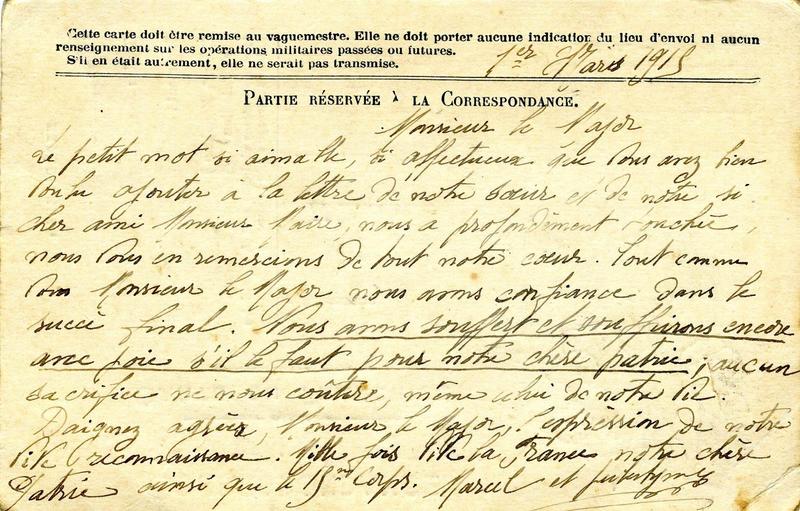 Cette carte doit être remise au vaguemestre. Elle ne doit porter aucune indication du lieu d'envoi ni aucun
renseignement sur les opérations militaires passées ou futures.
S'il en était autrement, elle ne serait pas transmise.
1er Mars 1915
PARTIE RÉSERVÉE À LA CORRESPONDANCE.
Monsieur le Major
Le petit mot si aimable, si affectueux que vous avez bien
voulu ajouter à la lettre de notre sœur et de notre si
cher ami Monsieur Maire, nous a profondément touchés,
nous vous en remercions de tout notre cœur. Tout comme
vous Monsieur le Major nous avons confiance dans le
succè final. Nous avons souffert et souffrirons encore
avec joie s'il le faut pour notre chère patrie, aucun
sacrifice ne nous coûtera, même celui de notre vie.
Daignez agréer, Monsieur le Major, l'expression de notre
vive reconnaissance. Mille fois Vive la France notre chère
Patrie ainsi que le 15me Corps. Marcel et